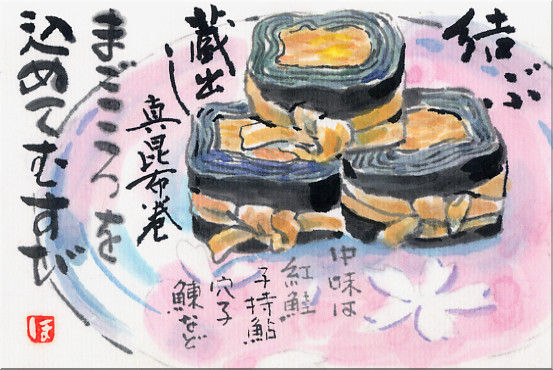 結ぶ
蔵出し
真昆布巻
まごころを
込めてむすび
中味は
紅鮭
子持鮎
穴子
鰊など
ほ